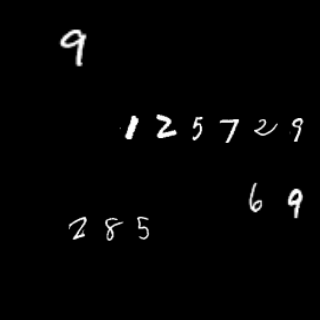 9
125729
69
285